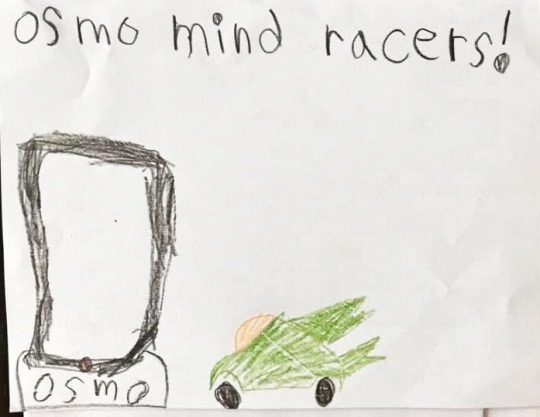 osmo mind racers!
osmo